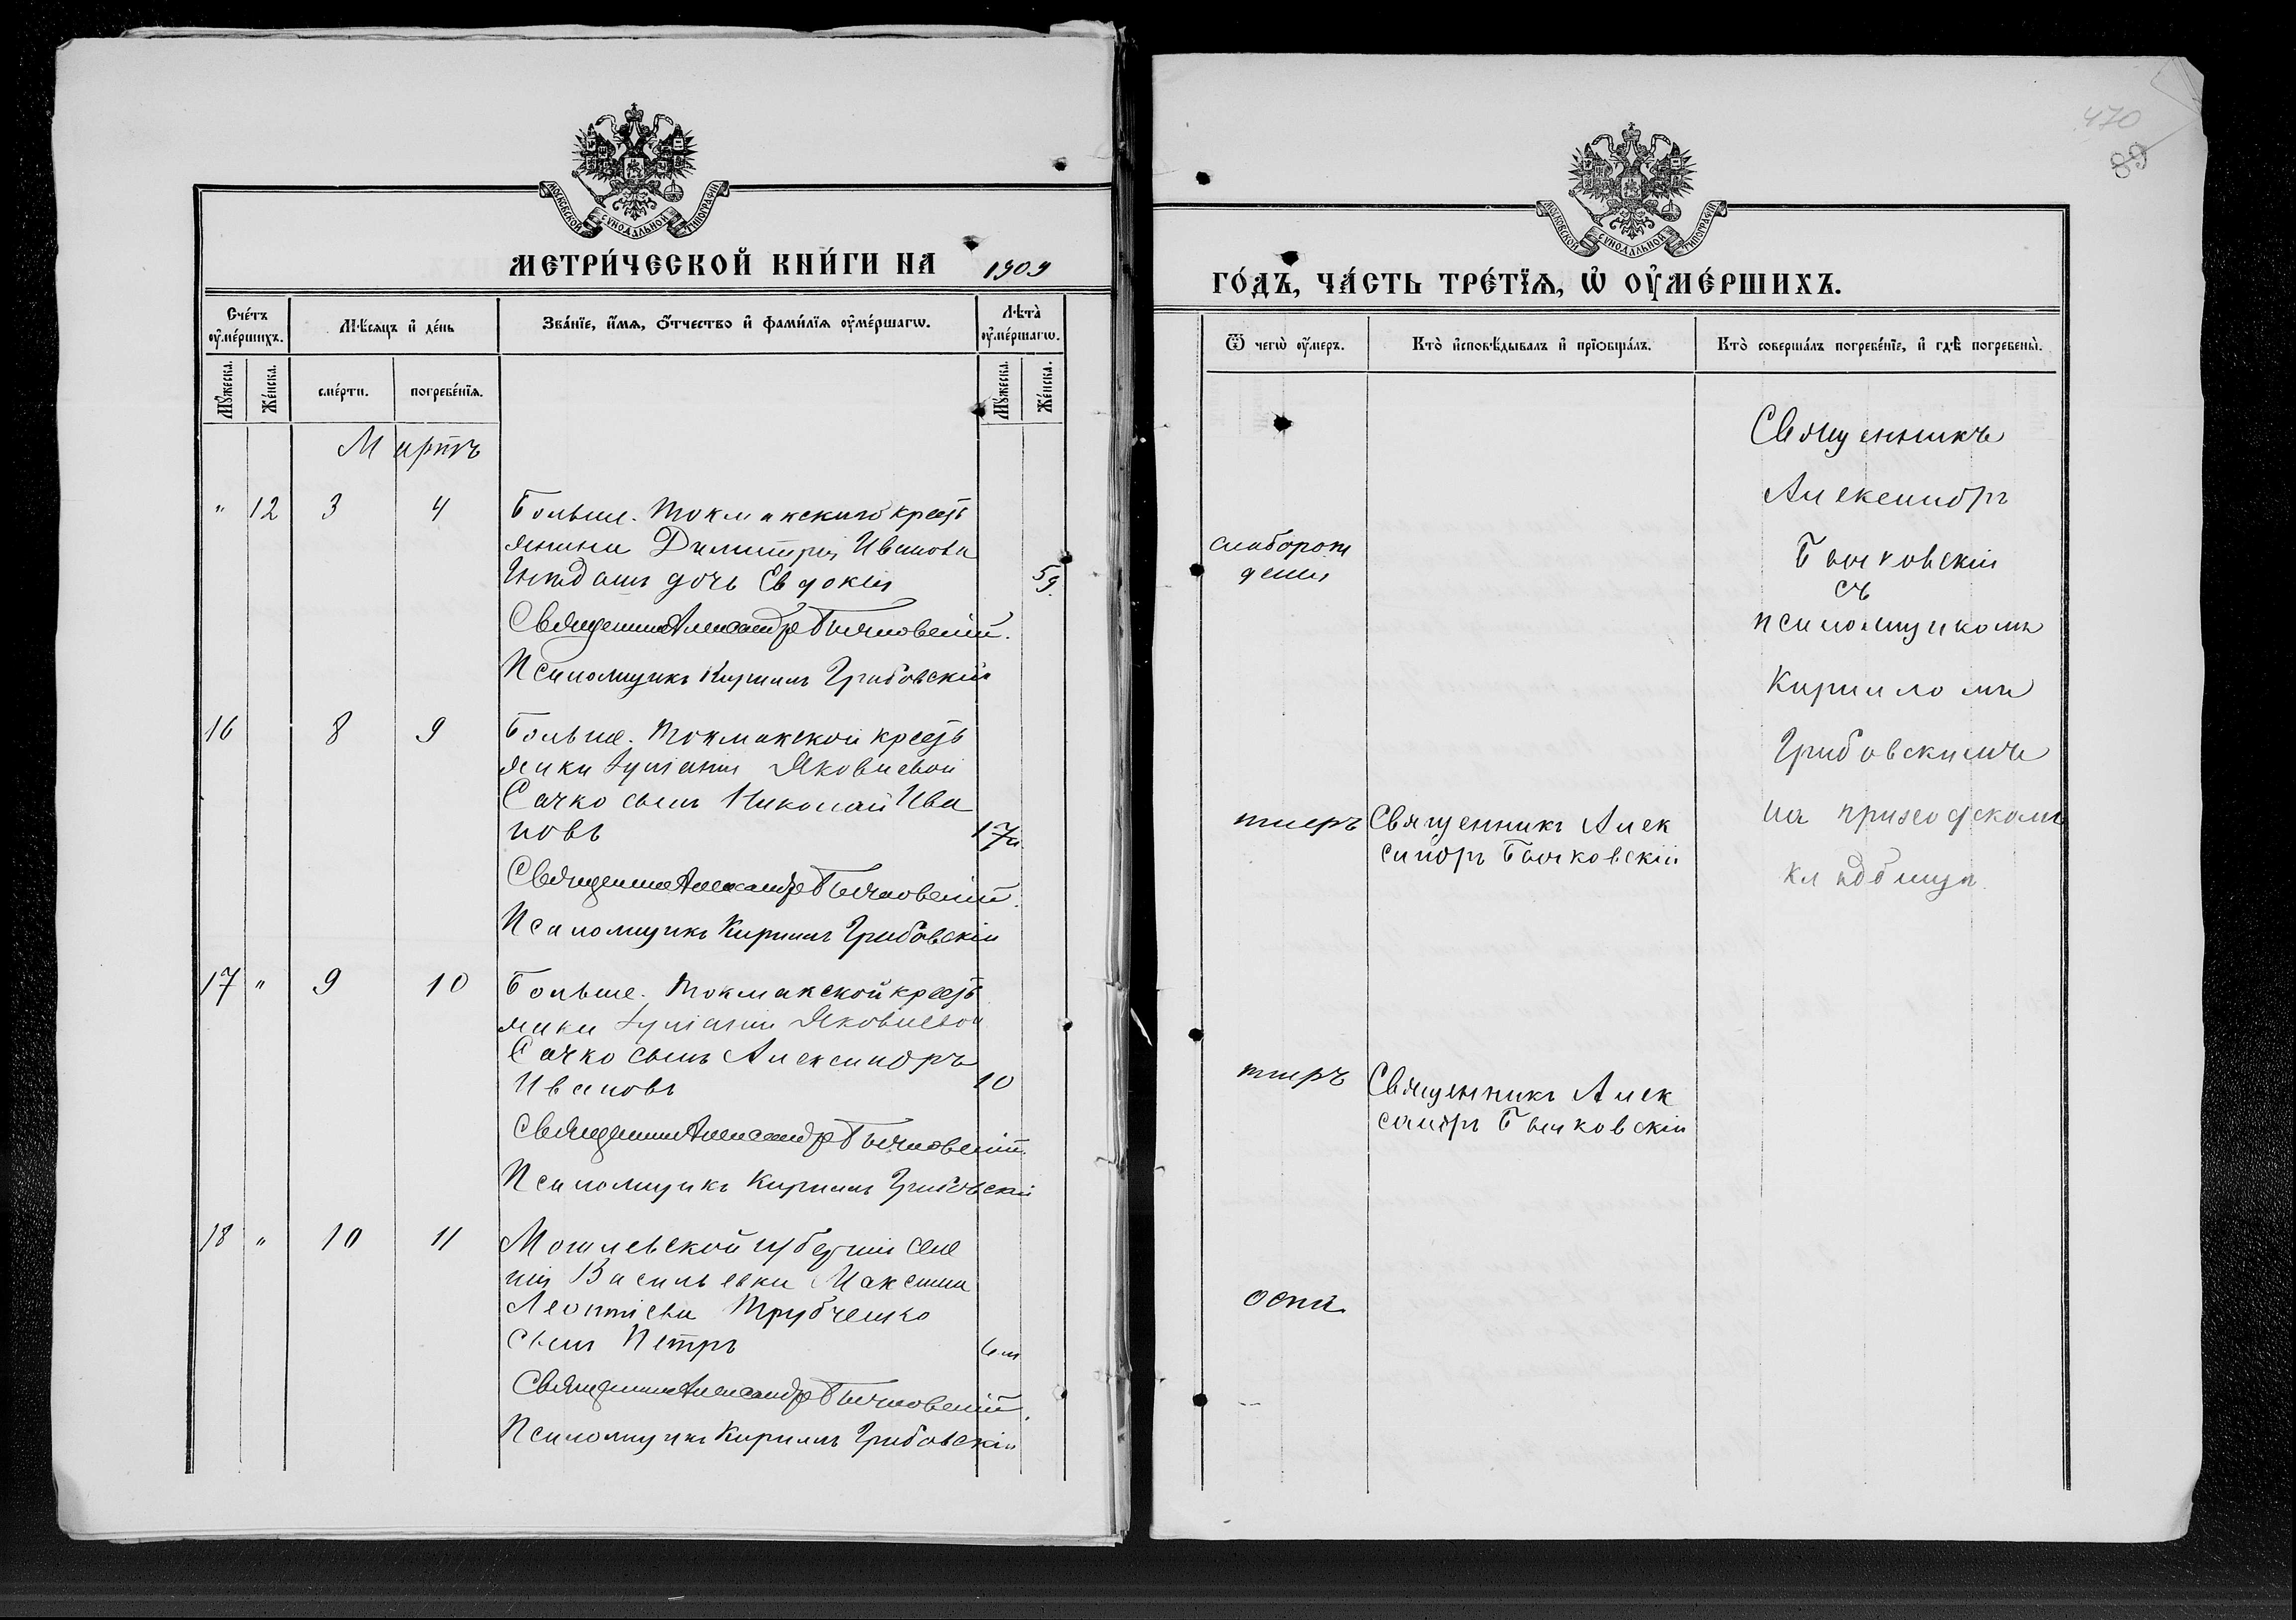 МОСКОВСКОЙ СѴНОДАЛЬНОЙ ТИПОГРАФІИ
МЕТРИ́ЧЕСКОЙ КНИ́ГИ НА 1909
Сче́тъ оу҆ме́ршихъ.
Мѣ́сяцъ и҆ де́нь
Зва́нїе, и҆́мя, ѻ҆́тчество и҆ фами́лїя оу҆ме́ршагѡ.
Лѣ́та оу҆ме́ршагѡ.
Мꙋ́жеска.
Же́нска.
сме́рти.
погребе́нїя.
Мꙋ́жеска.
Же́нска.
Мартъ
" 12 3 4 Больше. Токмакскаго крестъ
янина Димитрія Иванова
дочь Евдокія 5д.
Священникъ Александръ Бычковскій.
Псаломщикъ Кириллъ Грибовскій
16 8 9 Больше. Токмакской крестъ
янки Яковлевой
Сачко сынъ Николай Ива
новъ 17л.
Священникъ Александръ Бычковскій.
Псаломщикъ Кириллъ Грибовскій
17 " 9 10 Больше. Токмакской крестъ
янки Яковлевой
Сачко сынъ Александръ
Ивановъ 10
Священникъ Александръ Бычковскій.
Псаломщикъ Кириллъ Грибовскій
18 " 10 11 Могилевской губерніи селе
нія Васильевки Максима
Леонтіева Трубченко
сынъ Петръ 6м
Священникъ Александръ Бычковскій.
Псаломщикъ Кириллъ Грибовскій
470
89
МОСКОВСКОЙ СѴНОДАЛЬНОЙ ТИПОГРАФІИ
ГО́ДЪ, ЧА́СТЬ ТРЕ́ТЇѦ, Ѡ҆ ОУ҆МЕ́РШИХЪ.
Ѿ чегѡ̀ оу҆́меръ.
Кто̀ и҆сповѣ́дывалъ и҆ прїѡбща́лъ.
Кто̀ соверша́лъ погребе́нїе, и҆ гдѣ̀ погребены̀.
Священникъ
Александръ
слаборож
денія
Бычковскій
съ
псаломщикомъ
Кирилломъ
Грибовскимъ
на приходскомъ
кладбищѣ.
тифъ Священникъ Алек
сандръ Бычковскій
тифъ Священникъ Алек
сандръ Бычковскій
оспа